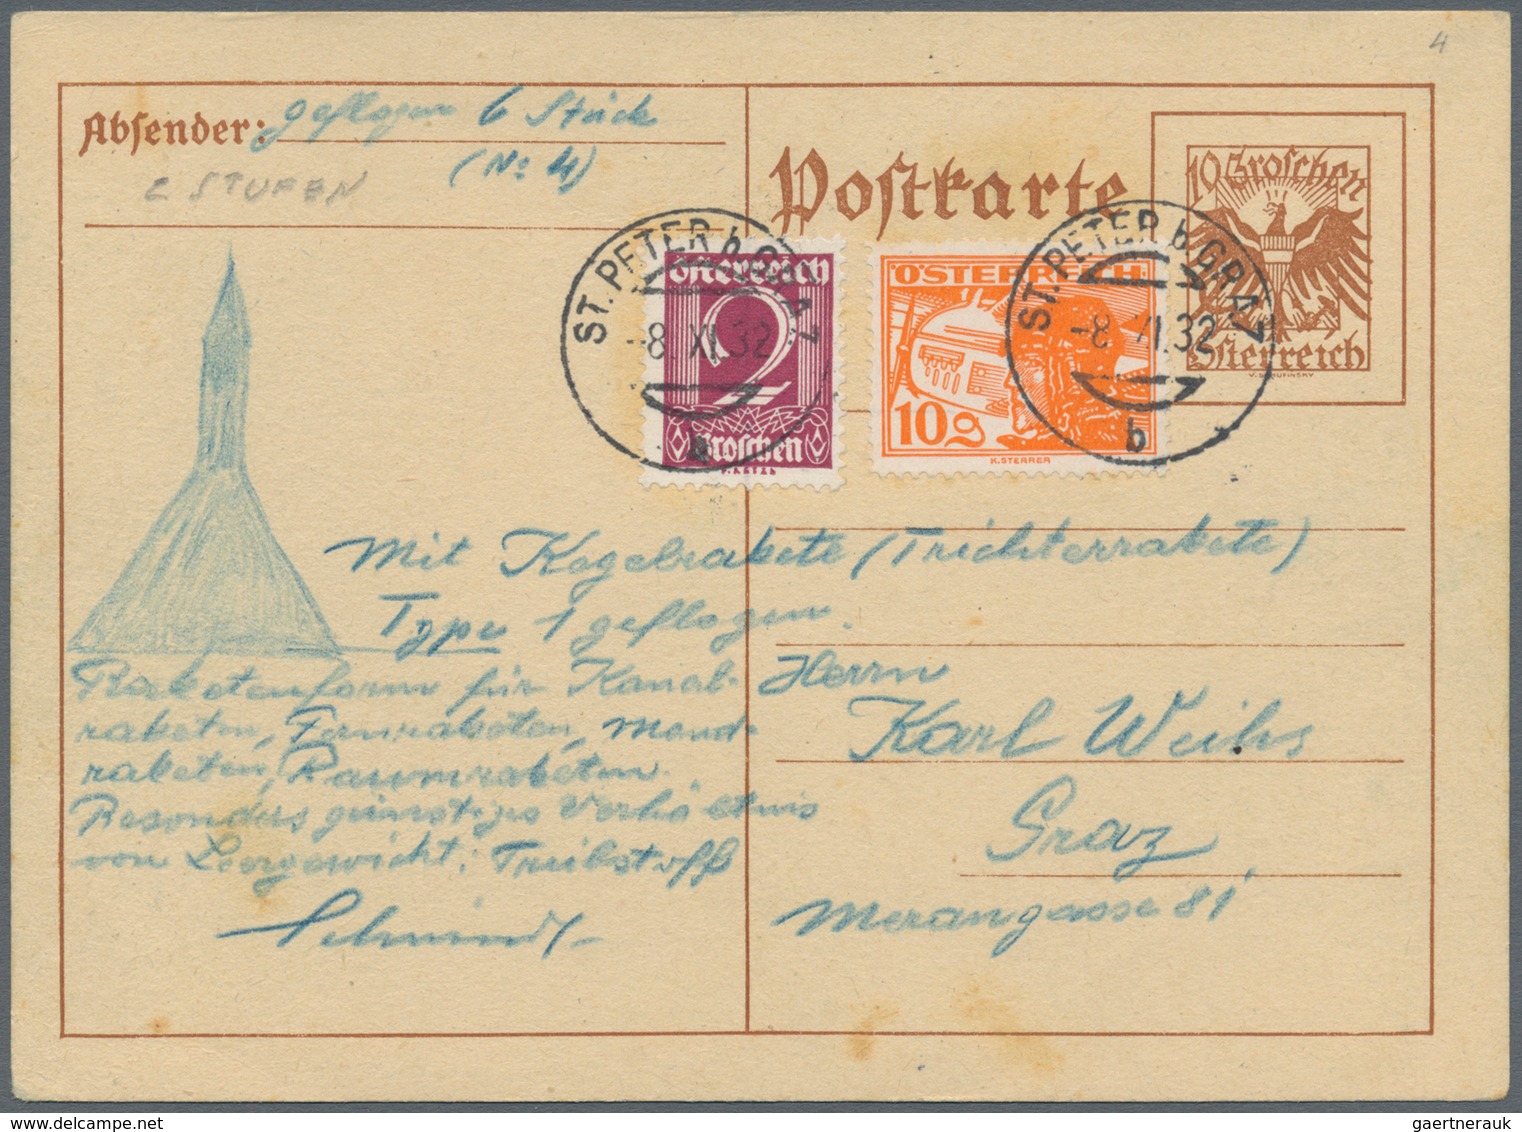 4
Absender: geflogen 6 Stück
(No 4)
2 STUFEN
Postkarte
10 Groschen
Österreich
V. SCHUFINSKY
ST. PETER b. GRAZ
-8. XI. 32
b
Österreich
2
Groschen
ÖSTERREICH
10g
K. STERRER
ST. PETER b. GRAZ
-8. XI. 32
b
Mit Kegelrakete (Trichterrakete)
Type 1 geflogen.
Raketenform für Kanal-
raketen, Fernraketen, Mond-
raketen, Raumraketen.
Besonders günstiges Verhältnis
von Leergewicht : Treibstoff
Schmiedl
Herrn
Karl Weihs
Graz
Merangasse 81
gaertnerauk